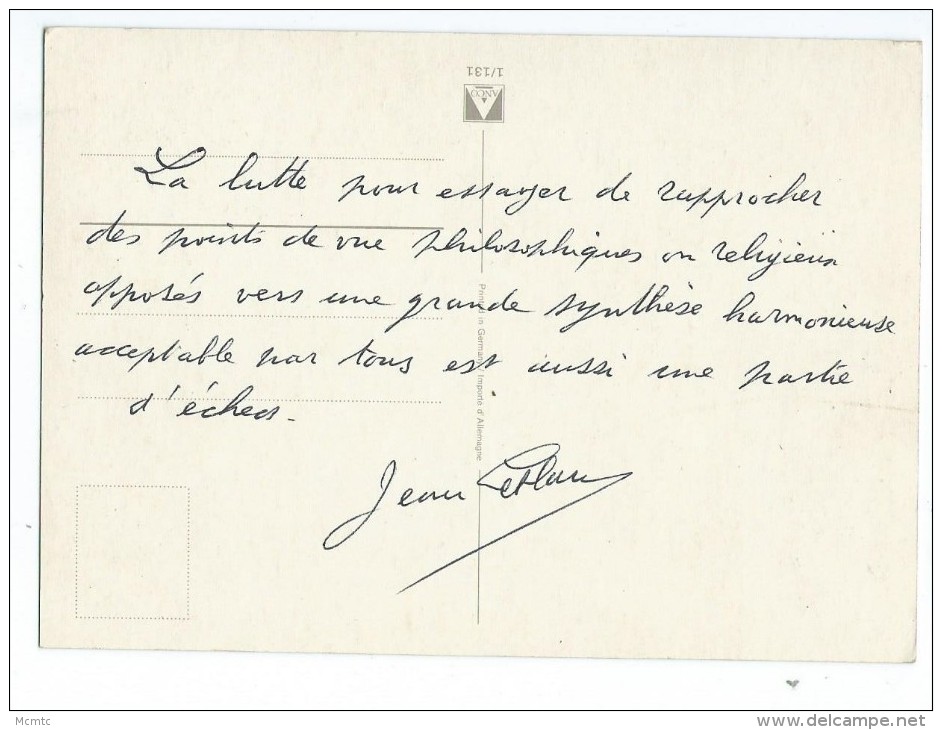 1/131
ANCO
La lutte pour essayer de rapprocher
des points de vue philosophiques ou religieux
opposés vers une grande synthèse harmonieuse
acceptable par tous est aussi une partie
d'échecs.
Jean
Printed in Germany / Importé d'Allemagne
Mcmtc
www.delcampe.net